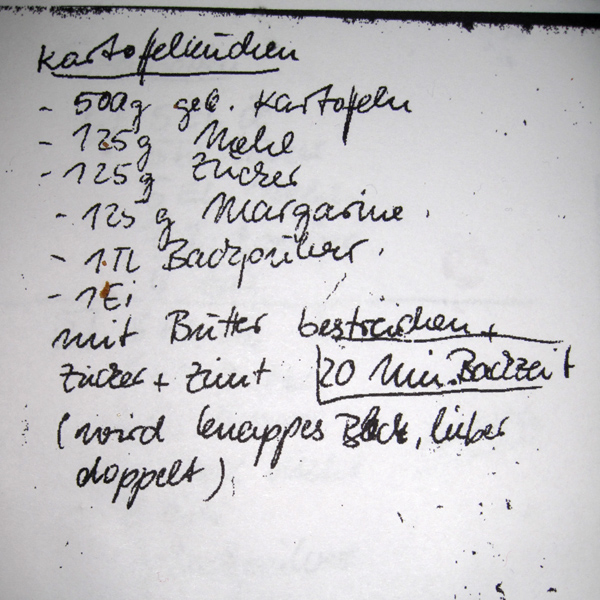 Kartoffelkuchen
- 500g gek. Kartofeln
- 125g Mehl
- 125g Zucker
- 125g Margarine.
- 1 TL Backpulver.
- 1 Ei
mit Butter bestreichen +
Zucker + Zimt 20 Min. Backzeit
(wird knappes Blech, lieber
doppelt)